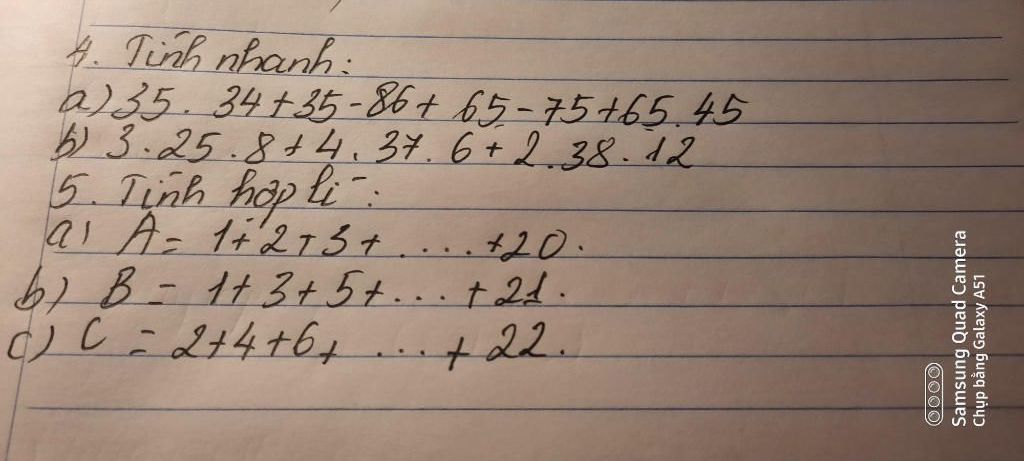 4. Tính nhanh:
a) 35. 34+35-86+ 65-75+65.45
b) 3.25.8+4.37.6+2.38.12
5. Tính hợp lí:
a) A= 1+2+3+....+20.
b) B = 1+3+5+...+21.
c) C = 2+4+6+ ...+ 22.
Samsung Quad Camera
Chụp bằng Galaxy A51